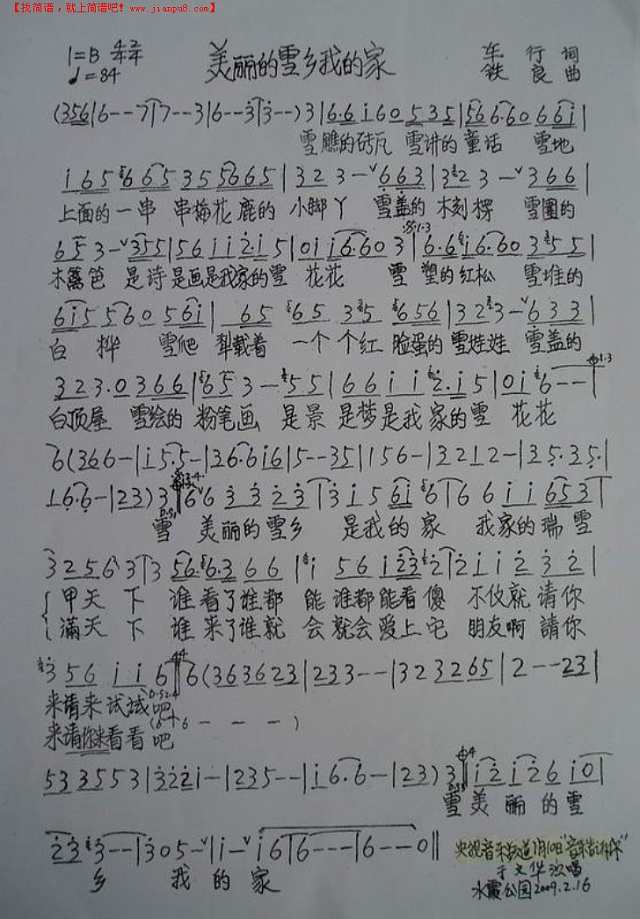 【找简谱，就上简谱吧！www.jianpu8.com】
1=B 4/4 2/4 美丽的雪乡我的家 车行 词
♩=84 铁良 曲
(356|6--7|7--3|6--3|3--)3|6·6i60535|566·6066i|
雪雕的砖瓦 雪讲的童话 雪地
i656655355665|323-663|323-366|
上面的一串 串梅花鹿的 小脚丫 雪盖的 木刻楞 雪围的
653-355|56ii2·i5|0ii6·603|6·6i6·60355|
木篱笆 是诗是画是我家的雪 花花 雪 塑的红松 雪堆的
6i5560 56i|65 65 35 656|323-633|
白 桦 雪爬 犁载着 一个个红 脸蛋的雪娃娃 雪盖的
323·0366|653-55|66ii2·i5|0i6--|
白顶屋 雪绘的 粉笔画 是景 是梦是我家的雪 花花
6(366-|i5·5-|36·6i6|5--35|156-|3212-|35·35·|
16·6-|23)3|6633323|3i56i|666ii653|
雪 美丽的雪乡 是我的家 我家的瑞雪
3256 3|3566·366|i56i23|22ii232|
甲天 下 谁看了谁都 能谁都能看傻 不仅就请你
满天 下 谁来了谁就 会就会爱上它 朋友啊 請你
356ii6|6(363623|233--|323265|2---23|
来请来试试吧
来请你来看看吧 (6 6 - - -)
533553|322i-|235--|i6·6-|23)3|i2i26i0|
雪美丽的雪
233--|305-|i-i6|6---|6---0‖
乡 我的家
于文华演唱
水霞公园2009.2.16